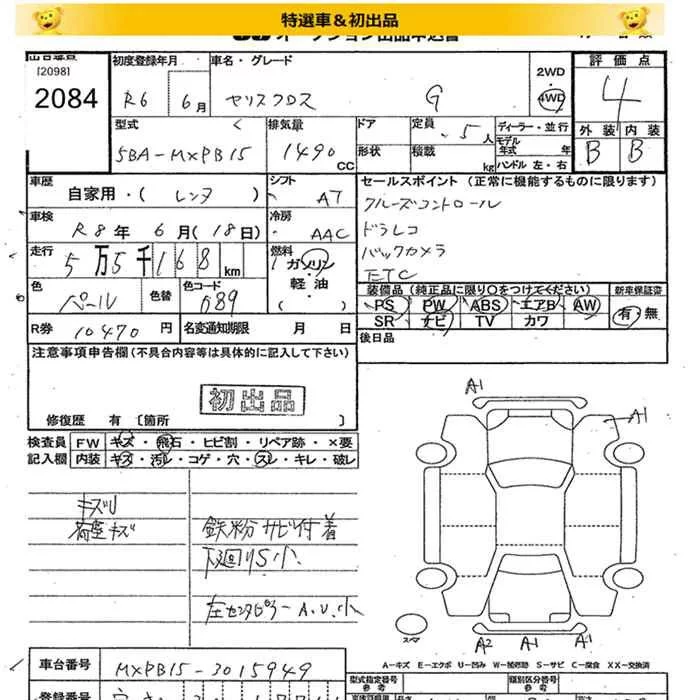 特選車＆初出品
オークション出品申込書
[2098]
2084
初度登録年月
R6 6月
車名・グレード
ヤリスクロス G
2WD
4WD
評価点
4
外装 内装
B B
型式
5BA-MXPB15
排気量
1490
CC
ドア
形状
定員 5人
積載 kg
ディーラー・並行
モデル年式 年
ハンドル 左・右
車歴
自家用・( レンタ )
シフト
AT
車検
R8年 6月(18日)
冷房
AAC
走行
5万5千168km
燃料
ガソリン
軽油
( )
色
パール
色替
色コード
089
R券 10470円
名変通知期限 月 日
セールスポイント (正常に機能するものに限ります)
クルーズコントロール
ドラレコ
バックカメラ
ETC
装備品 (純正品に限り○をつけてください)
新車保証書
PS PW ABS エアB AW
SR ナビ TV カワ
有・無
後日品
注意事項申告欄(不具合内容等は具体的に記入して下さい)
初出品
修復歴 有 〔箇所 〕
検査員 FW キズ・飛石・ヒビ割・リペア跡・×要
記入欄 内装 キズ・汚レ・コゲ・穴・スレ・キレ・破レ
キズU
荷室キズ
鉄粉 サビ付着
下廻りS小
左センタピラーA.U.小
A1
A1
スペア
A2 A1 A1
A－キズ E－エクボ U－凹み W－補修跡 S－サビ C－腐食 XX－交換済
車台番号
MXPB15-3015949
型式指定番号
参考
類別区分番号
参考
登録番号